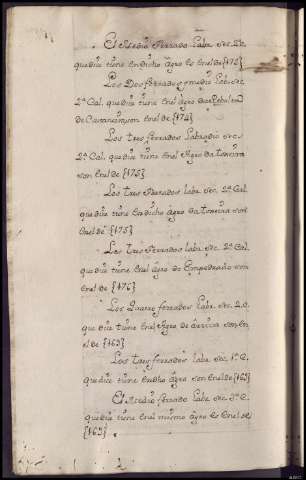 El Medio Ferrado labr. sec. 2.ª C.
que dice tiene en dicho Agro es en el de {172}
Los Dos ferrados y medio labr. sec.
2.ª Cal. que dice tiene en el Agro da
de son en el de {174}
Los tres ferrados Labradio sec.
2.ª Cal. que dice tiene en el Agro da torreira
son en el de {175}
Los tres Ferrados labr. sec. 2.ª Cal.
que dice tiene en dicho Agro da torreira son
en el de {175}
Los tres Ferrados labr. sec. 2.ª Cal.
que dice tiene en el Agro do Empedrado son
en el de {176}
Los Quatro ferrados labr. s. 2.ª C.
que dice tiene en el Agro de arriva son en
el de {163}
Los tres ferrados labr. sec. 1.ª C.
que dice tiene en dho Agro son en el de {163}
El Medio ferrado labr. sec. 2.ª C.
que dice tiene en el mismo Agro es en el de
{163}